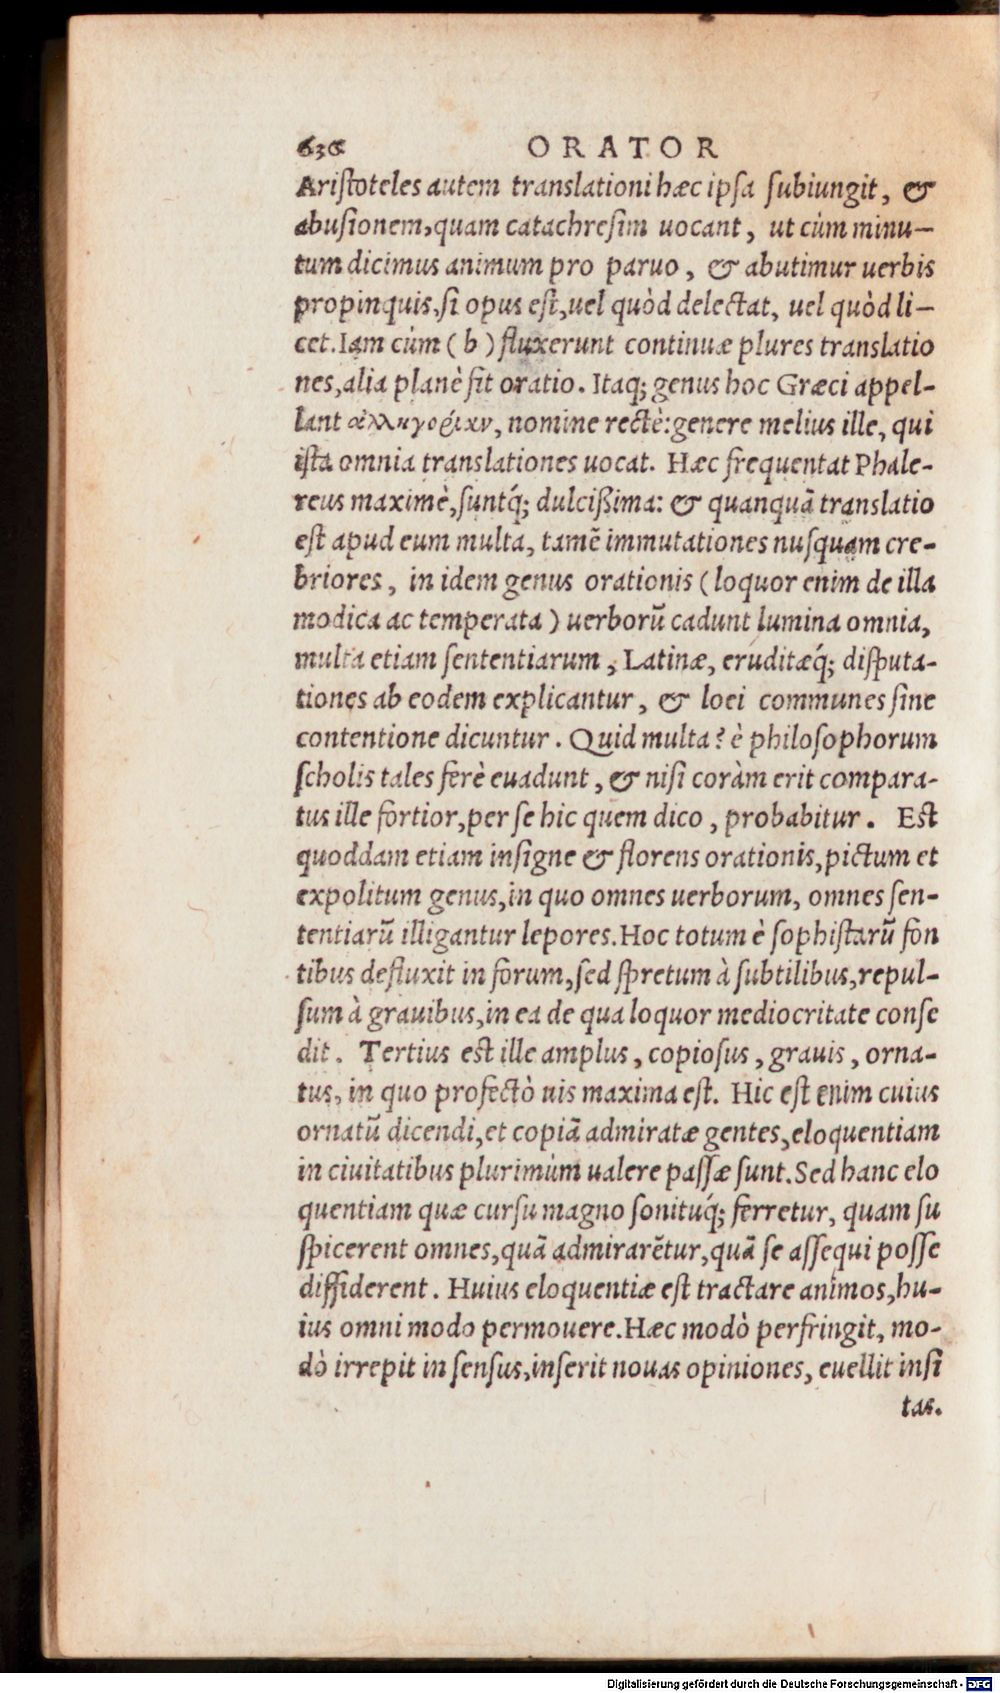 630 ORATOR
Ariſtoteles autem translationi hæc ipſa ſubiungit, &
abuſionem, quam catachreſim uocant, ut cùm minu-
tum dicimus animum pro paruo, & abutimur uerbis
propinquis, ſi opus eſt, uel quòd delectat, uel quòd li-
cet. Iam cùm (b) fluxerunt continuæ plures translatio
nes, alia planè fit oratio. Itaq; genus hoc Græci appel-
lant ἀλληγορίαν, nomine rectè: genere melius ille, qui
iſta omnia translationes uocat. Hæc frequentat Phale-
reus maximè, ſuntq́; dulcißima: & quanquā translatio
eſt apud eum multa, tamē immutationes nuſquam cre-
briores, in idem genus orationis (loquor enim de illa
modica ac temperata) uerborū cadunt lumina omnia,
multa etiam ſententiarum, Latinæ, eruditæq́; diſputa-
tiones ab eodem explicantur, & loci communes ſine
contentione dicuntur. Quid multa? è philoſophorum
ſcholis tales ferè euadunt, & niſi coràm erit compara-
tus ille fortior, per ſe hic quem dico, probabitur. Eſt
quoddam etiam inſigne & florens orationis, pictum et
expolitum genus, in quo omnes uerborum, omnes ſen-
tentiarū illigantur lepores. Hoc totum è ſophiſtarū fon
tibus defluxit in forum, ſed ſpretum à ſubtilibus, repul-
ſum à grauibus, in ea de qua loquor mediocritate conſe
dit. Tertius eſt ille amplus, copioſus, grauis, orna-
tus, in quo profectò uis maxima eſt. Hic eſt enim cuius
ornatū dicendi, et copiā admiratæ gentes, eloquentiam
in ciuitatibus plurimùm ualere paſſæ ſunt. Sed hanc elo
quentiam quæ curſu magno ſonituq́; ferretur, quam ſu
ſpicerent omnes, quā admirarētur, quā ſe aſſequi poſſe
diffiderent. Huius eloquentiæ eſt tractare animos, hu-
ius omni modo permouere. Hæc modò perfringit, mo-
dò irrepit in ſenſus, inſerit nouas opiniones, euellit inſi
tas.
Digitalisierung gefördert durch die Deutsche Forschungsgemeinschaft - DFG